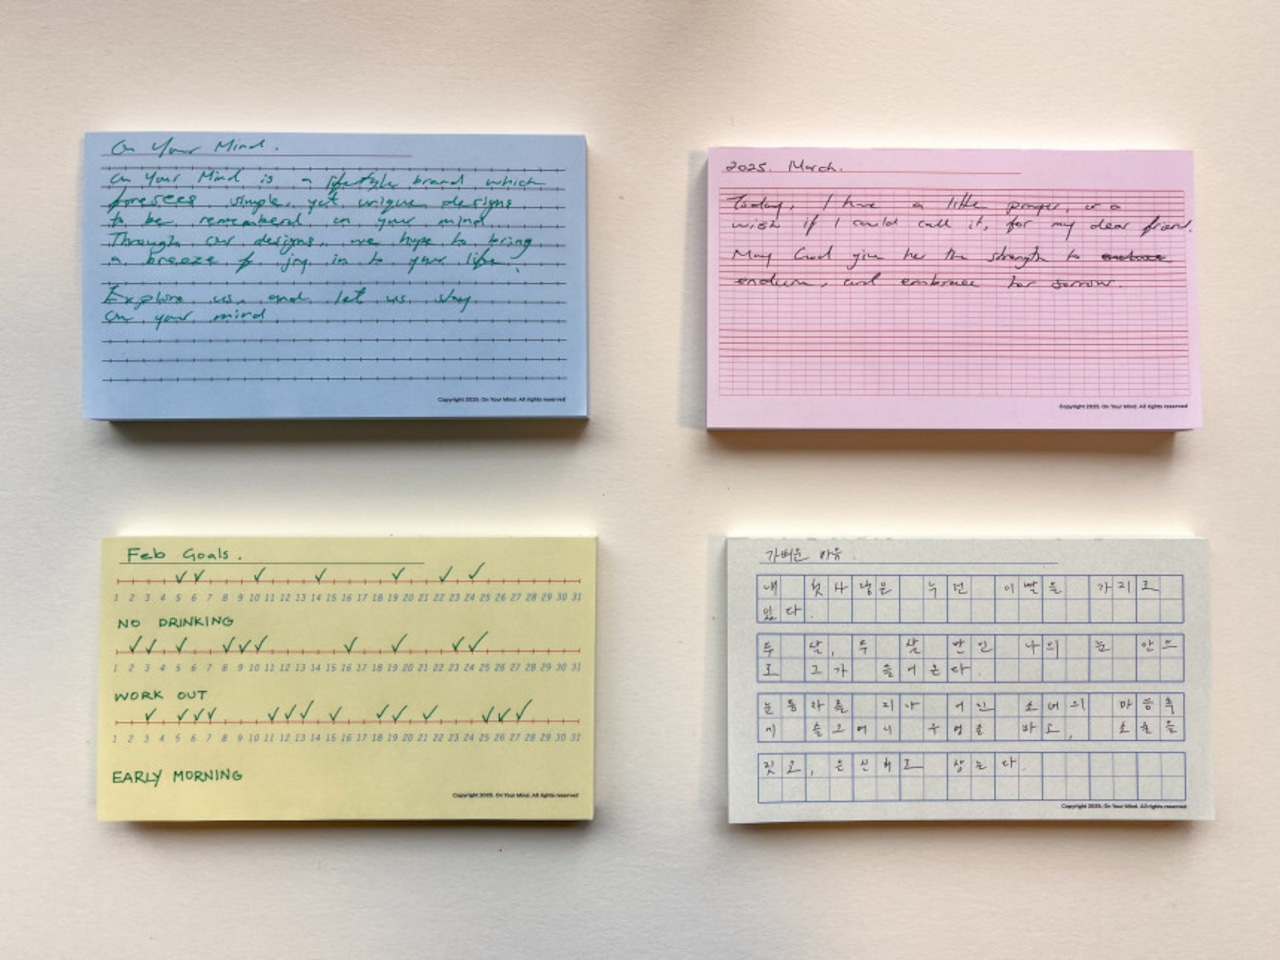 On Your Mind.
On Your Mind is a lifestyle brand which
foresees simple, yet unique designs
to be remembered in your mind
Through our designs, we hope to bring
a breeze of joy in to your life.
Explore us, and let us stay
on your mind
Copyright 2025. On Your Mind. All rights reserved
2025. March.
Today, I have a little prayer, or a
wish if I could call it, for my dear friend.
May God give her the strength to
endure, and embrace her sorrow.
Copyright 2025. On Your Mind. All rights reserved
Feb Goals.
1 2 3 4 5 6 7 8 9 10 11 12 13 14 15 16 17 18 19 20 21 22 23 24 25 26 27 28 29 30 31
NO DRINKING
1 2 3 4 5 6 7 8 9 10 11 12 13 14 15 16 17 18 19 20 21 22 23 24 25 26 27 28 29 30 31
WORK OUT
1 2 3 4 5 6 7 8 9 10 11 12 13 14 15 16 17 18 19 20 21 22 23 24 25 26 27 28 29 30 31
EARLY MORNING
Copyright 2025. On Your Mind. All rights reserved
가벼운 마음
내 첫 나 낡은 누런 이빨을 가리고
있다.
두 날, 두 날 만인 나의 눈 안으
로 그가 들어온다.
눈동자를 지나 어린 소녀의 마음속
에 슬그머니 구멍을 바고,
짓고, 은신처로 삼는다.
Copyright 2025. On Your Mind. All rights reserved